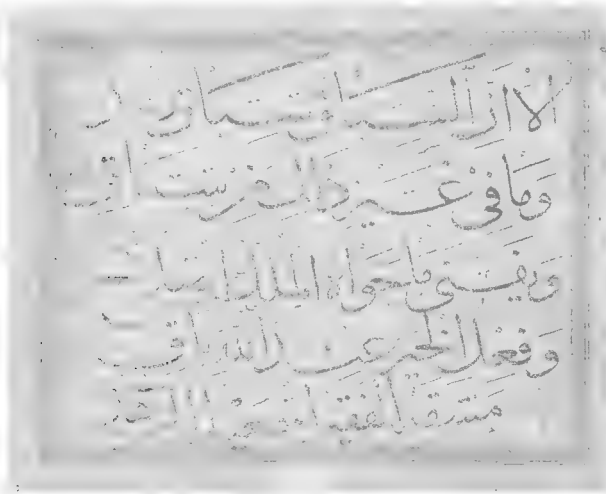 الا ان السباق سباق
وما في غير ذلك من سباق
ويفنى ما حواه الملك اصلا
وفعل الخير عند الله باق
الفقير